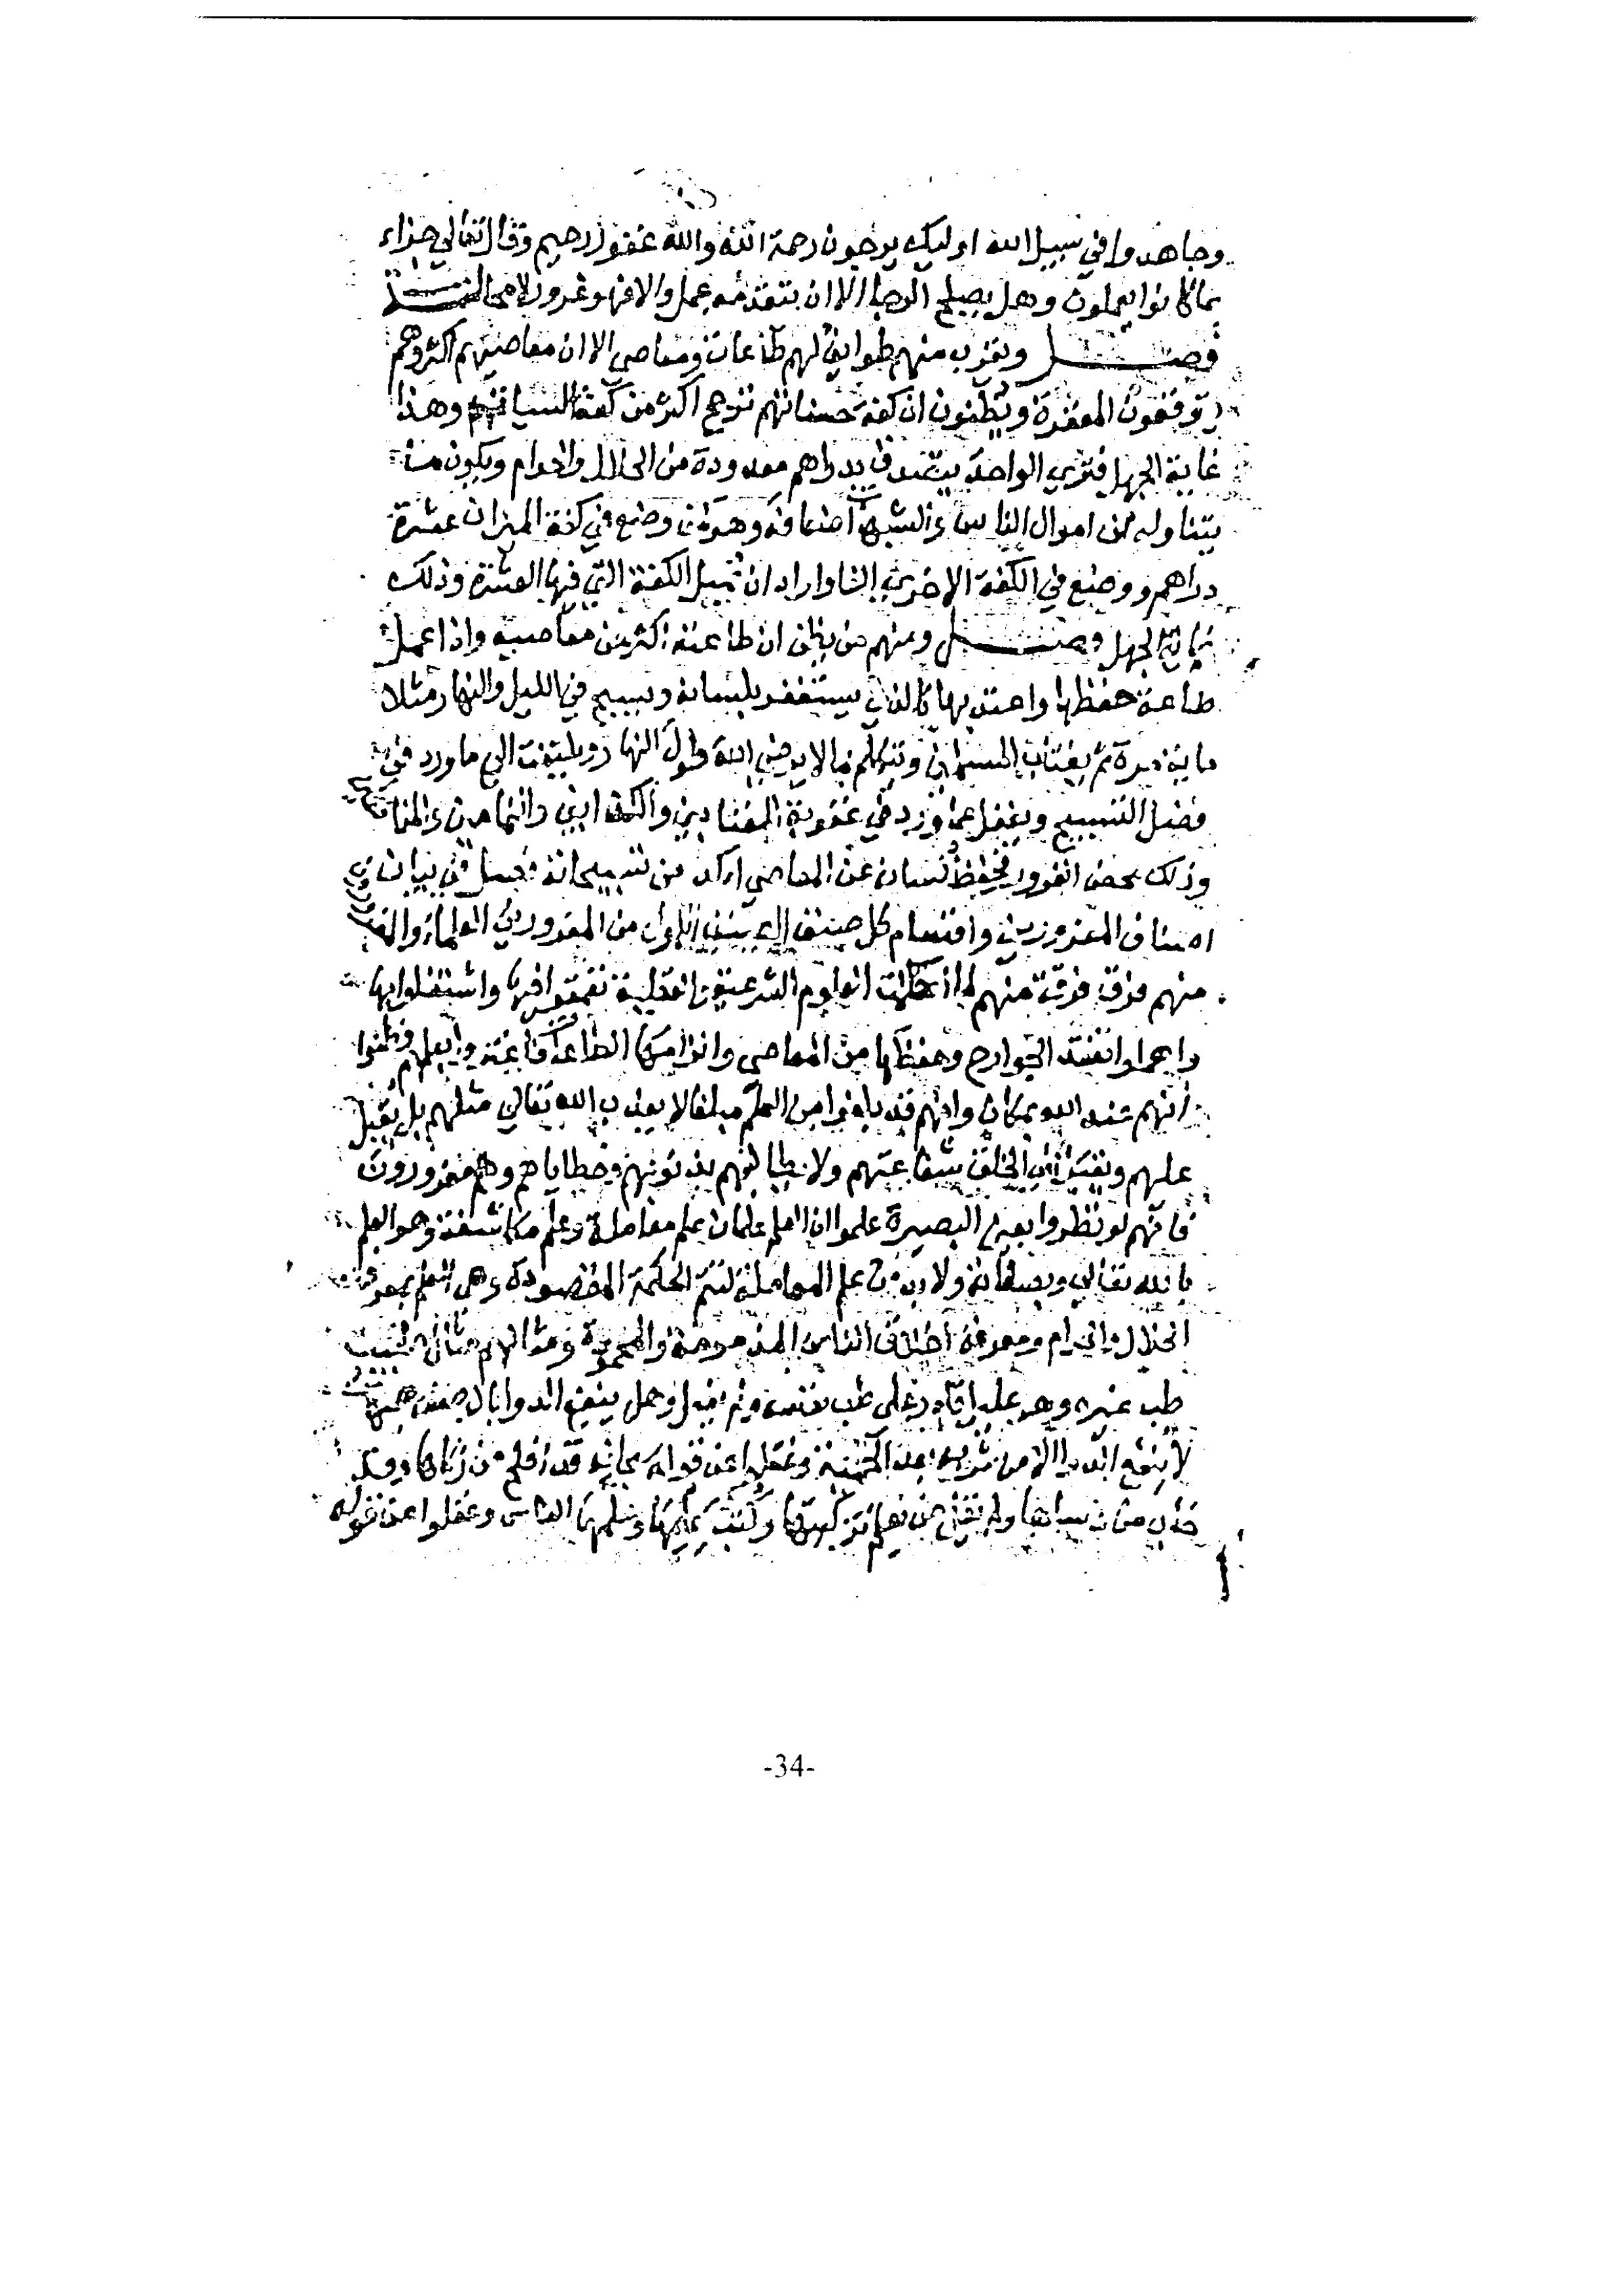 وجاهدوا في سبيل الله اوليك يرجون رحمة الله والله غفور رحيم وقال تعالي جزاء
بما كانوا يعملون وهل يصلح الرجا الا ان يتقدمه عمل والا فهو غرور لا محالة
فصل ويقرب منهم طوايف لهم طاعات ومعاصي الا ان معاصيهم اكثر وهم
يتوقعون المغفرة ويظنون ان كفة حسناتهم ترجح اكثر من كفة السيات وهذا
غاية الجهل فتري الواحد يتصدق بدراهم معدودة من الحلال والحرام ويكون ما
يتناوله من اموال الناس والشبهات اضعافه وهو كمن وضع في كفة الميزان عشرة
دراهم ووضع في الكفة الاخري الفا واراد ان تميل الكفة التي فيها العشرة وذلك
غاية الجهل فصل ومنهم من يظن ان طاعته اكثر من معاصيه واذا عمل
طاعة حفظها واعتد بها كالذي يستغفر بلسانه ويسبح في الليل والنهار مثلا
ماية مرة ثم يغتاب المسلمين ويتكلم بما لا يرضي الله طول النهار ويلتفت الي ما ورد في
فضل التسبيح ويغفل عما ورد في عقوبة المغتابين والكذابين والنمامين والمنافقين
وذلك محض الغرور فحفظ لسانه عن المعاصي اكد من تسبيحاته فصل في بيان
اصناف المغرورين واقسام كل صنف الصنف الاول من المغرورين العلماء
منهم فرق فرقة منهم لما احكمت العلوم الشرعية والعقلية تعمقوا فيها واشتغلوا بها
واهملوا تفقد الجوارح وحفظها من المعاصي والزامها الطاعة بعلمهم وظنوا
انهم عند الله بمكان وانهم قد بلغوا من العلم مبلغا لا يعذب الله تعالي مثلهم بل يقبل
عليهم الخلق شفاعتهم ولا يطالبهم بذنوبهم وخطاياهم وهم مغرورون
فانهم لو نظروا بعين البصيرة علموا ان العلم علمان علم معاملة وعلم مكاشفة وهو العلم
بالله تعالي وبصفاته ولا بد من علم المعاملة لتتم الحكمة المقصودة وهي العلم بمعرفة
الحلال والحرام ومعرفة اخلاق الناس المذمومة والمحمودة ومثالهم مثال طبيب
طب غيره وهو عليل قادر علي طب نفسه ولم يفعل وهل ينفع الدوا بالوصف هيهات
لا ينفع الدوا الا من شربه بعد الحمية وغفلوا عن قوله سبحانه قد افلح من زكاها وقد
خاب من دساها ولم يقل من يعلم تزكيتها وكتب علمها وعلمها الناس وغفلوا عن قوله
-34-